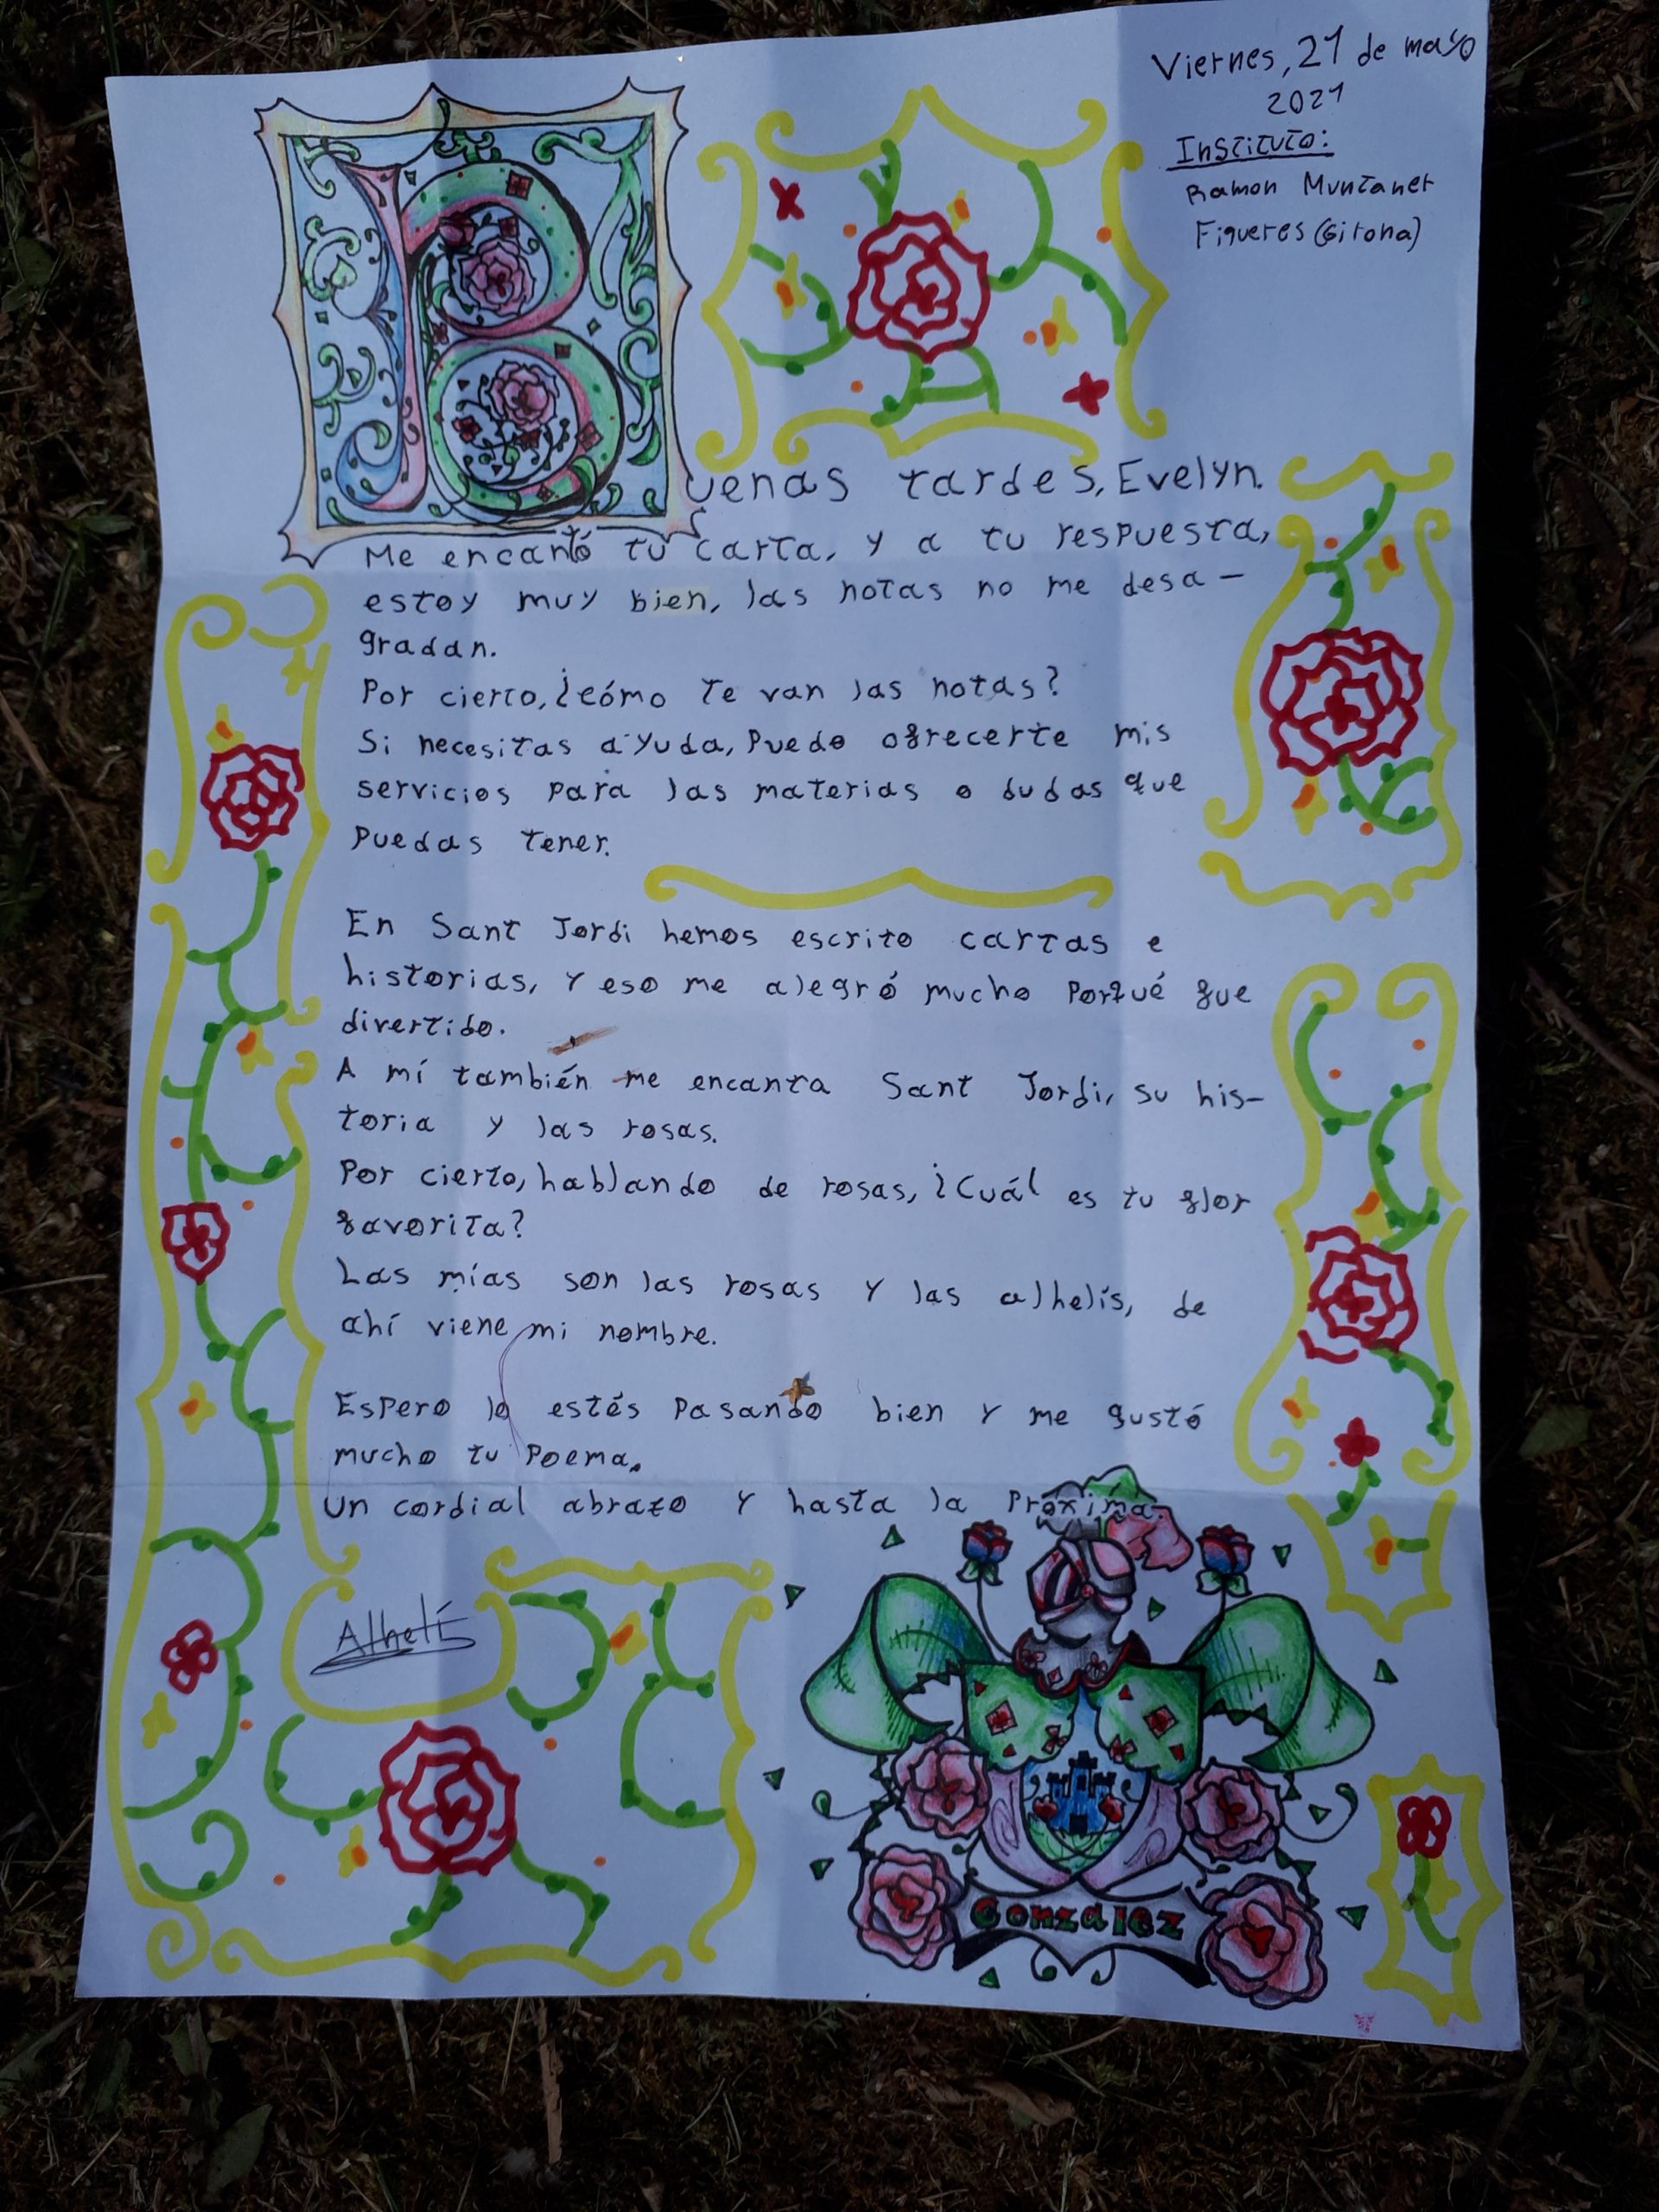 Viernes, 21 de mayo
2021
Instituto:
Ramon Muntaner
Figueres (Girona)
Buenas tardes, Evelyn.
Me encantó tu carta, y a tu respuesta,
estoy muy bien, las notas no me desa-
gradan.
Por cierto, ¿cómo te van las notas?
Si necesitas ayuda, puedo ofrecerte mis
servicios para las materias o dudas que
puedas tener.
En Sant Jordi hemos escrito cartas e
historias, y eso me alegró mucho porqué fue
divertido.
A mí también me encanta Sant Jordi, su his-
toria y las rosas.
Por cierto, hablando de rosas, ¿Cuál es tu flor
favorita?
Las mías son las rosas y las alhelís, de
ahí viene mi nombre.
Espero lo estés pasando bien y me gustó
mucho tu poema.
Un cordial abrazo y hasta la próxima.
Alhelí
Gonzalez